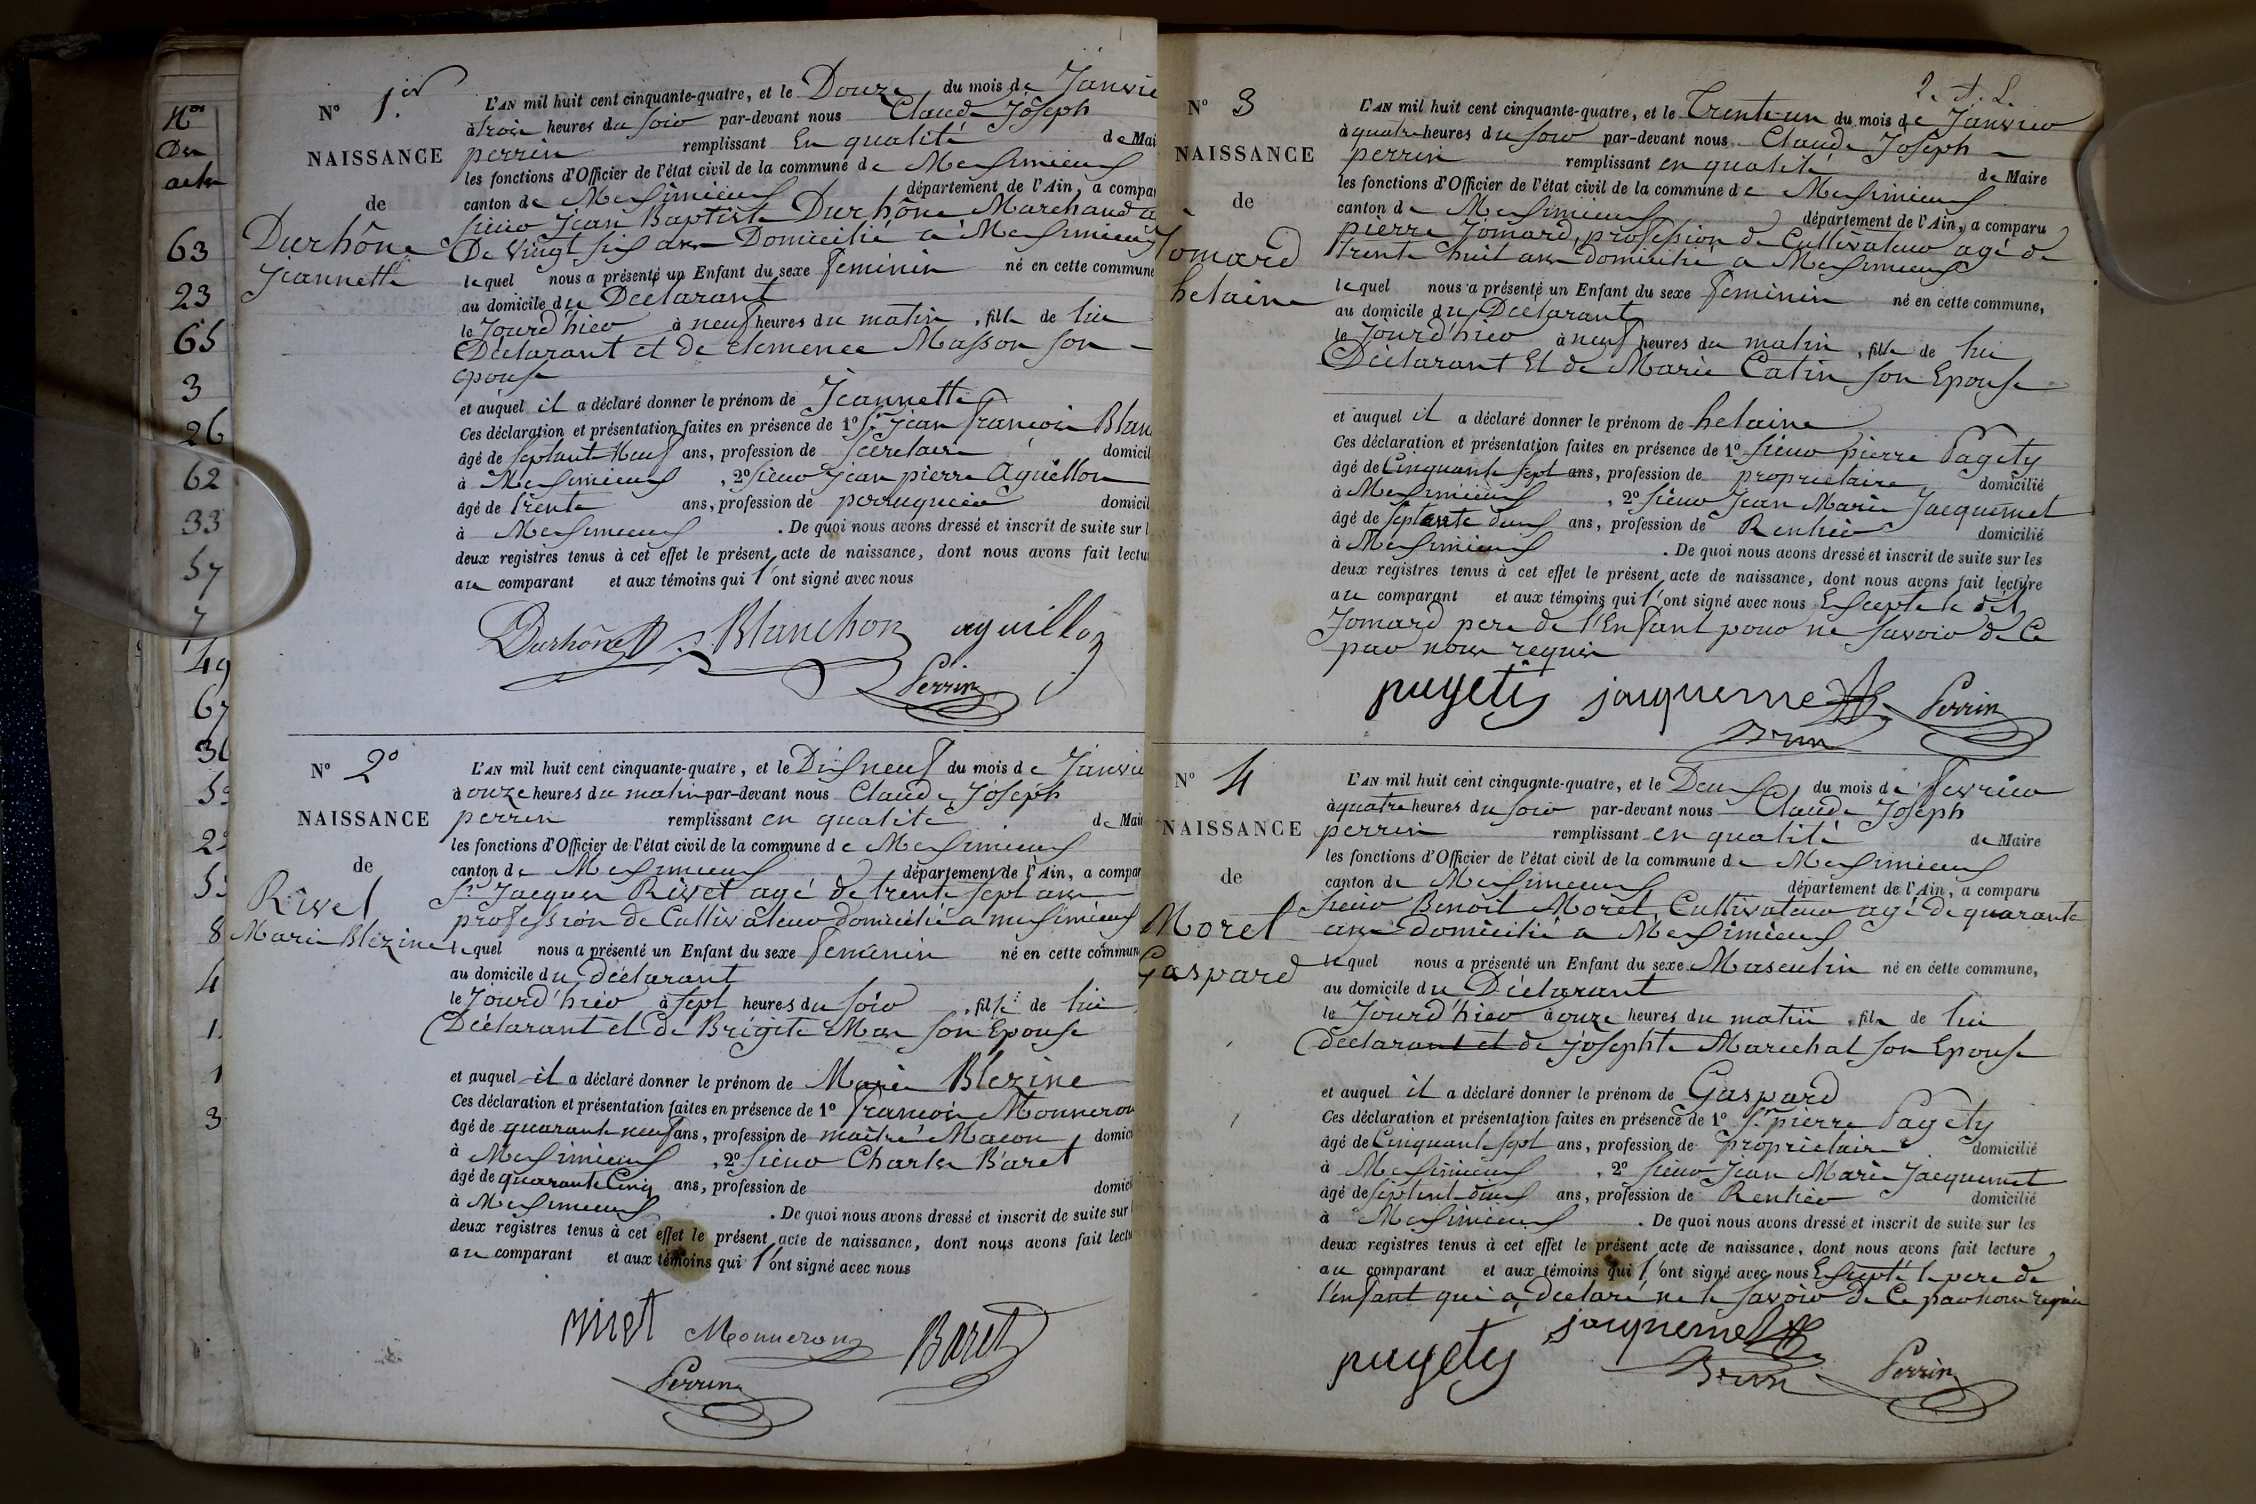 Nos
Des
actes
63
23
65
3
26
62
33
57
7
49
67
8
4
1
1
3
N° 1.er
NAISSANCE
de
Durhône
Jeannette
L'AN mil huit cent cinquante-quatre, et le Douze du mois de Janvie
à trois heures du soir par-devant nous Claude Joseph
perrin remplissant En qualité de Mai
les fonctions d'Officier de l'état civil de la commune de Meximieux
canton de Meximieux département de l'Ain, a compar
sieur Jean Baptiste Durhône Marchand a
De vingt six ans Domicilié a Meximieux
lequel nous a présenté un Enfant du sexe feminin né en cette commune
au domicile du Déclarant
le Jourd'hier à neuf heures du matin, fille de lui
Déclarant et de clemence Masson son
epouse
et auquel il a déclaré donner le prénom de Jeannette
Ces déclaration et présentation faites en présence de 1° Sr Jean francois Blan
âgé de septante Neuf ans, profession de secretaire domicil
à Meximieux, 2° sieur jean pierre Aguillon
âgé de trente ans, profession de perruquier domicil
à Meximieux. De quoi nous avons dressé et inscrit de suite sur l
deux registres tenus à cet effet le présent acte de naissance, dont nous avons fait lectu
au comparant et aux témoins qui l'ont signé avec nous
Durhône Blanchon aguillon
Perrin
N° 2°
NAISSANCE
de
Rivet
Marie Blezine
L'AN mil huit cent cinquante-quatre, et le Dixneuf du mois de Janvie
à onze heures du matin par-devant nous Claude Joseph
perrin remplissant en qualité de Mai
les fonctions d'Officier de l'état civil de la commune de Meximieux
canton de Meximieux département de l'Ain, a compar
Sr. Jacques Rivet agé de trente sept ans
profession de Cultivateur domicilié a meximieux
lequel nous a présenté un Enfant du sexe femenin né en cette commun
au domicile du déclarant
le Jourd'hier à sept heures du soir, fille de lui
Déclarant et de Brigite Mas son Epouse
et auquel il a déclaré donner le prénom de Marie Blezine
Ces déclaration et présentation faites en présence de 1° francois Monneron
âgé de quarante neuf ans, profession de maitre Macon domici
à Meximieux, 2° sieur Charles Baret
âgé de quarante Cinq ans, profession de domici
à Meximieux. De quoi nous avons dressé et inscrit de suite sur
deux registres tenus à cet effet le présent acte de naissance, dont nous avons fait lectu
au comparant et aux témoins qui l'ont signé avec nous
rivet Monneron Baret
Perrin
N° 3
NAISSANCE
de
Jomard
helaine
L'AN mil huit cent cinquante-quatre, et le Trente-un du mois de Janvier
à quatre heures du soir par-devant nous Claude Joseph
perrin remplissant en qualité de Maire
les fonctions d'Officier de l'état civil de la commune de Meximieux
canton de Meximieux département de l'Ain, a comparu
pierre Jomard, profession de Cultivateur agé de
trente huit ans domicilié a Meximieux
lequel nous a présenté un Enfant du sexe feminin né en cette commune,
au domicile du Déclarant
le Jourd'hier à neuf heures du matin, fille de lui
Déclarant Et de Marie Catin son Epouse
et auquel il a déclaré donner le prénom de helaine
Ces déclaration et présentation faites en présence de 1° sieur pierre Pagety
âgé de Cinquante sept ans, profession de proprietaire domicilié
à Meximieux, 2° sieur Jean Marie Jacquemet
âgé de septante deux ans, profession de Rentier domicilié
à Meximieux. De quoi nous avons dressé et inscrit de suite sur les
deux registres tenus à cet effet le présent acte de naissance, dont nous avons fait lecture
au comparant et aux témoins qui l'ont signé avec nous Excepté le dit
Jomard pere de l'Enfant pour ne savoir de Ce
par nous requis
pugety jacquemet Perrin
N° 4
NAISSANCE
de
Moret
Gaspard
L'AN mil huit cent cinquante-quatre, et le Deux du mois de fevrier
à quatre heures du soir par-devant nous Claude Joseph
perrin remplissant en qualité de Maire
les fonctions d'Officier de l'état civil de la commune de Meximieux
canton de Meximieux département de l'Ain, a comparu
sieur Benoit Moret Cultivateur agé de quarante
ans domicilié a Meximieux
lequel nous a présenté un Enfant du sexe Masculin né en cette commune,
au domicile du Déclarant
le Jourd'hier à onze heures du matin, fils de lui
declarant et de Josephte Marechal son Epouse
et auquel il a déclaré donner le prénom de Gaspard
Ces déclaration et présentation faites en présence de 1° Sr. pierre Pagety
âgé de Cinquante sept ans, profession de proprietaire domicilié
à Meximieux, 2° sieur Jean Marie Jacquemet
âgé de septent deux ans, profession de Rentier domicilié
à Meximieux. De quoi nous avons dressé et inscrit de suite sur les
deux registres tenus à cet effet le présent acte de naissance, dont nous avons fait lecture
au comparant et aux témoins qui l'ont signé avec nous Excepté le pere de
l'enfant qui a declaré ne le savoir de Ce par nous requis
pugety jacquemet Perrin